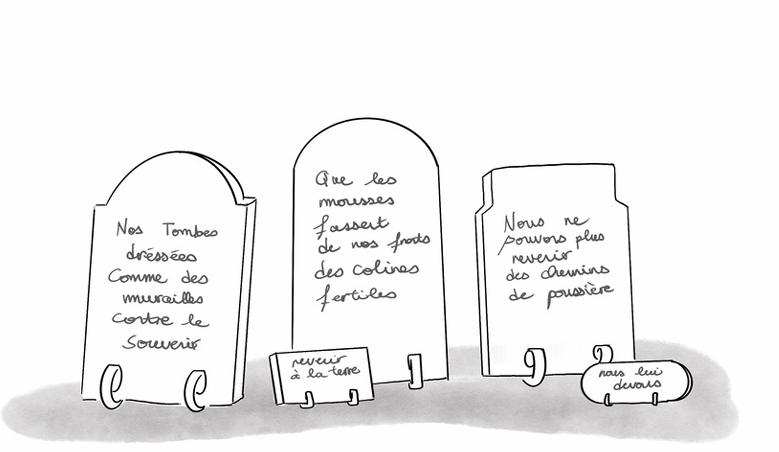 Nos Tombes
dréssées
Comme des
murailles
Contre le
Souvenir
Que les
mousses
fassent
de nos fronts
des colines
fertiles
revenir
à la terre
Nous ne
pouvons plus
revenir
des chemins
de poussière
nous lui
devons